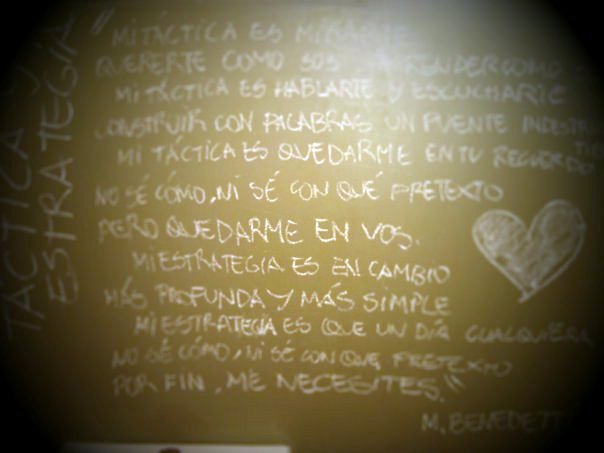 TÁCTICA Y
ESTRATEGIA
"MI TÁCTICA ES MIRARTE
QUERERTE COMO SOS
MI TÁCTICA ES HABLARTE Y ESCUCHARTE
CONSTRUIR CON PALABRAS UN PUENTE
MI TÁCTICA ES QUEDARME EN TU RECUERDO
NO SÉ CÓMO, NI SÉ CON QUÉ PRETEXTO
PERO QUEDARME EN VOS.
MI ESTRATEGIA ES EN CAMBIO
MÁS PROFUNDA Y MÁS SIMPLE
MI ESTRATEGIA ES QUE UN DÍA CUALQUIERA
NO SÉ CÓMO, NI SÉ CON QUE, PRETEXTO
POR FIN, ME NECESITES."
M. BENEDETTI